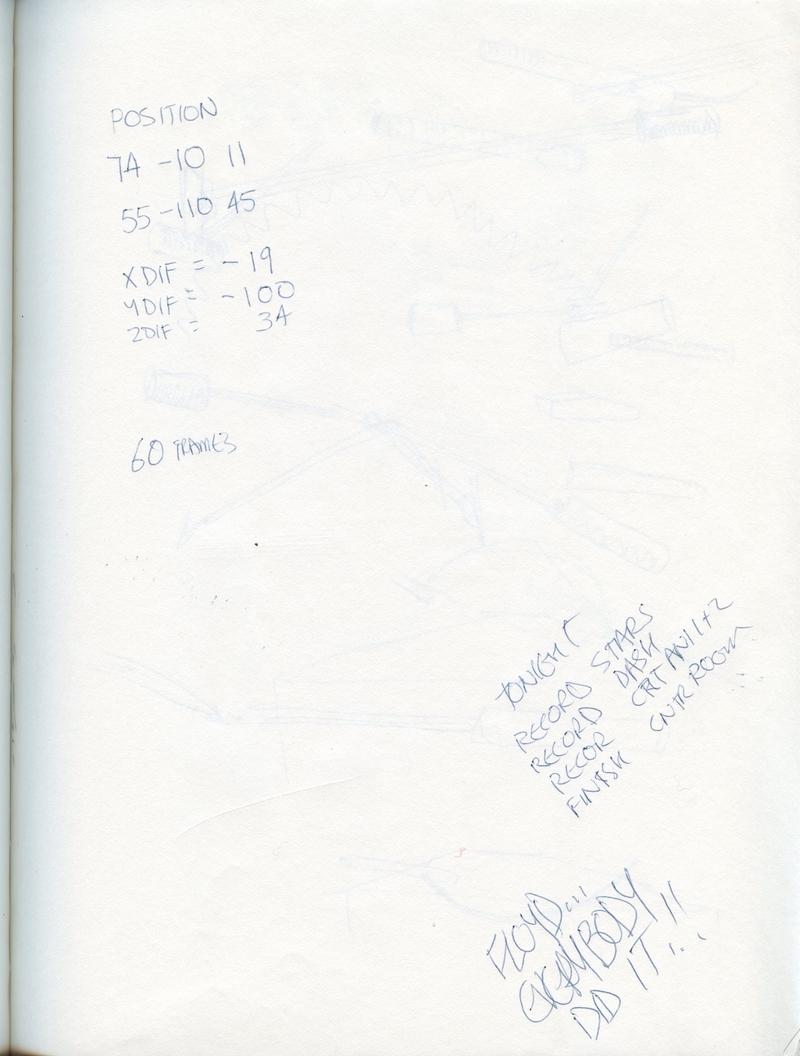 POSITION
74 -10 11
55 -110 45
XDIF = -19
YDIF = -100
ZDIF = 34
60 FRAMES
TONIGHT
RECORD STARS
RECORD DASH
RECOR CRT ANI 1+2
FINISH CNTR ROOM
FLOYD...
EVERYBODY
DID IT!!